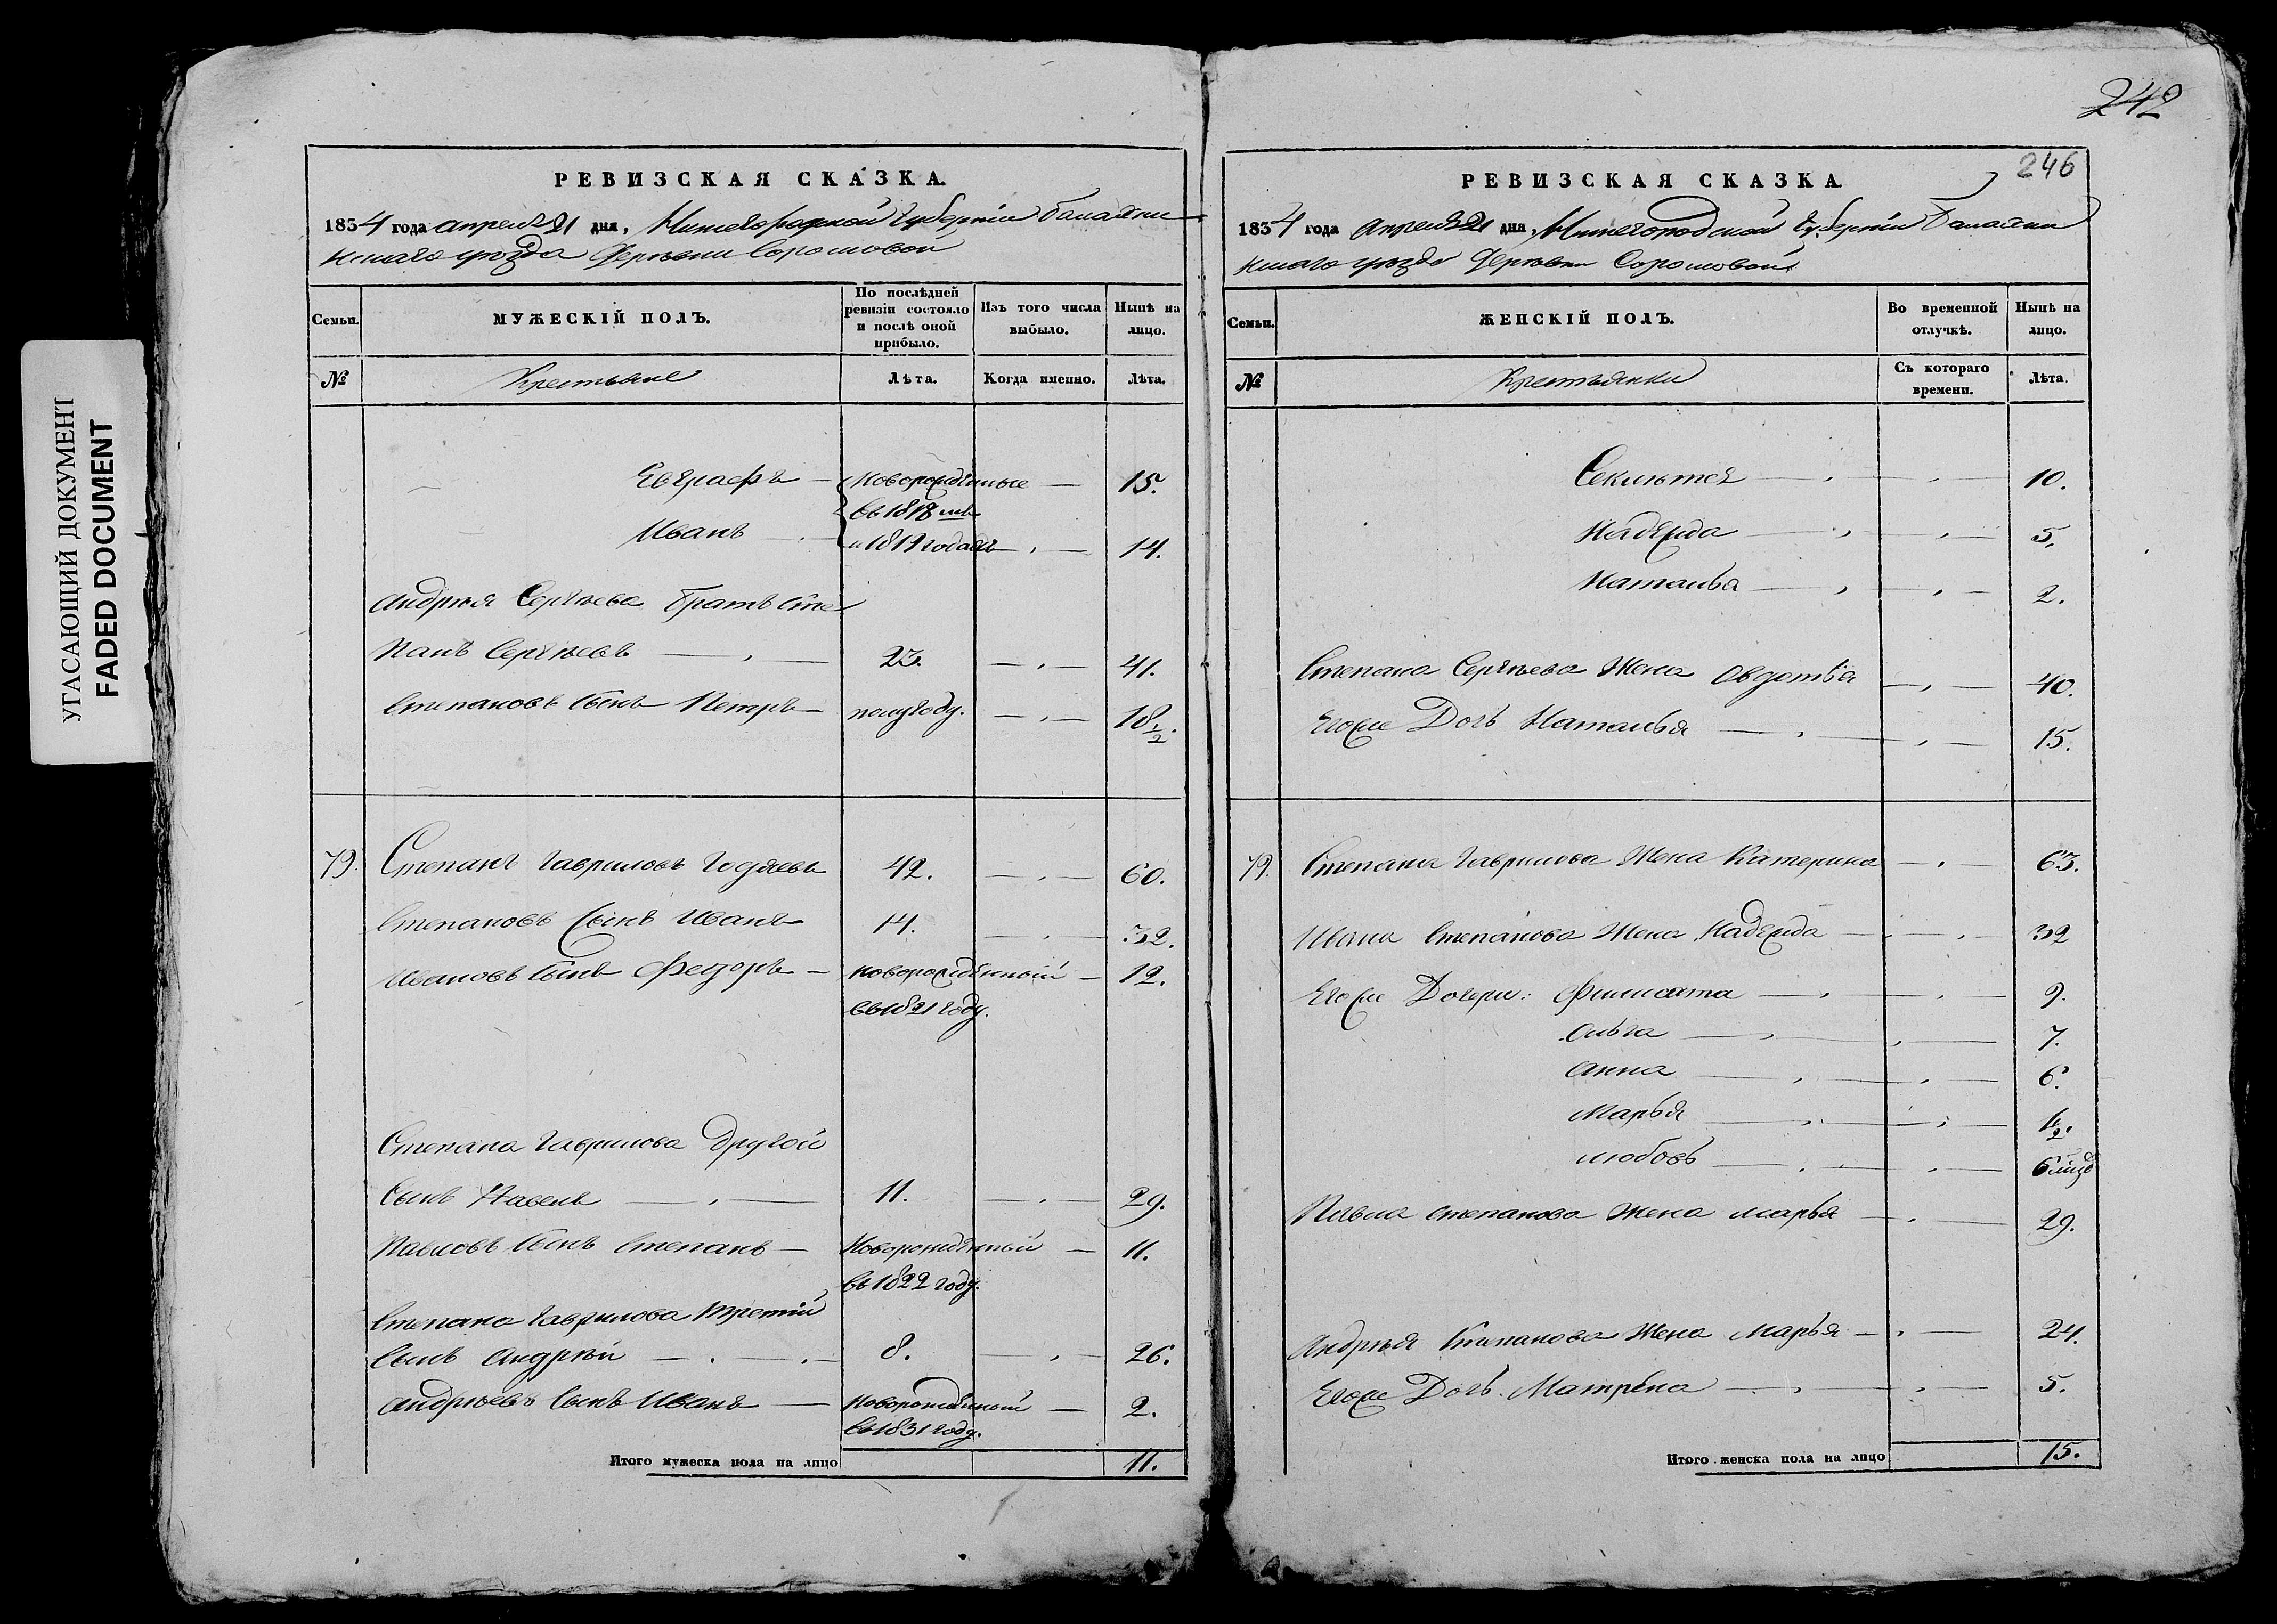 УГАСАЮЩИЙ ДОКУМЕНТ
FADED DOCUMENT
РЕВИЗСКАЯ СКАЗКА.
1834 года апреля 21 дня, Нижегородской Губернiи Балахни
нскаго уѣзда Деревни Сормовой
Семьи.
МУЖЕСКIЙ ПОЛЪ.
По послѣдней ревизiи состояло и послѣ оной прибыло.
Изъ того числа выбыло.
Нынѣ на лицо.
№ Крестьяне Лѣта. Когда именно. Лѣта.
Евграфъ — новорожденные — 15.
въ 1818 мъ
Иванъ — и 1819 годахъ — 14.
Андрѣя Сергѣева братъ Сте
панъ Сергѣевъ — 23. — 41.
Степановъ сынъ Петръ — полугоду. — 18 1/2.
79. Степанъ Гавриловъ 42. — 60.
Степановъ сынъ Иванъ 14. — 32.
Ивановъ сынъ Федоръ — новорожденный — 12.
въ 1821 году.
Степана Гаврилова другой
сынъ Павелъ — 11. — 29.
Павловъ сынъ Степанъ — Новорожденный — 11.
въ 1822 году.
Степана Гаврилова третiй
сынъ Андрѣй — 8. — 26.
Андрѣевъ сынъ Иванъ — Новорожденный — 2.
въ 1831 году.
Итого мужеска пола на лицо 11.
242
246
РЕВИЗСКАЯ СКАЗКА
1834 года апреля 21 дня, Нижегородской Губернiи Балахни
нскаго уѣзда Деревни Сормовой
Семьи.
ЖЕНСКIЙ ПОЛЪ.
Во временной отлучкѣ.
Нынѣ на лицо.
№ Крестьянки Съ котораго времени. Лѣта.
Секлѣтея — 10.
Надежда — 5.
Наталья — 2.
Степана Сергѣева Жена Овдотья — 40.
Егоже Дочь Наталья — 15.
79. Степана Гаврилова Жена Катерина — 63.
Ивана Степанова Жена Надежда — 32
Егоже Дочери: Филисата — 9.
Ольга — 7.
Анна — 6.
Марья — 1/2.
Любовь — 6 мцъ
Павла Степанова Жена Марья — 29.
Андрѣя Степанова Жена Марья — 24.
Егоже Дочь Матрена — 5.
Итого женска пола на лицо 15.